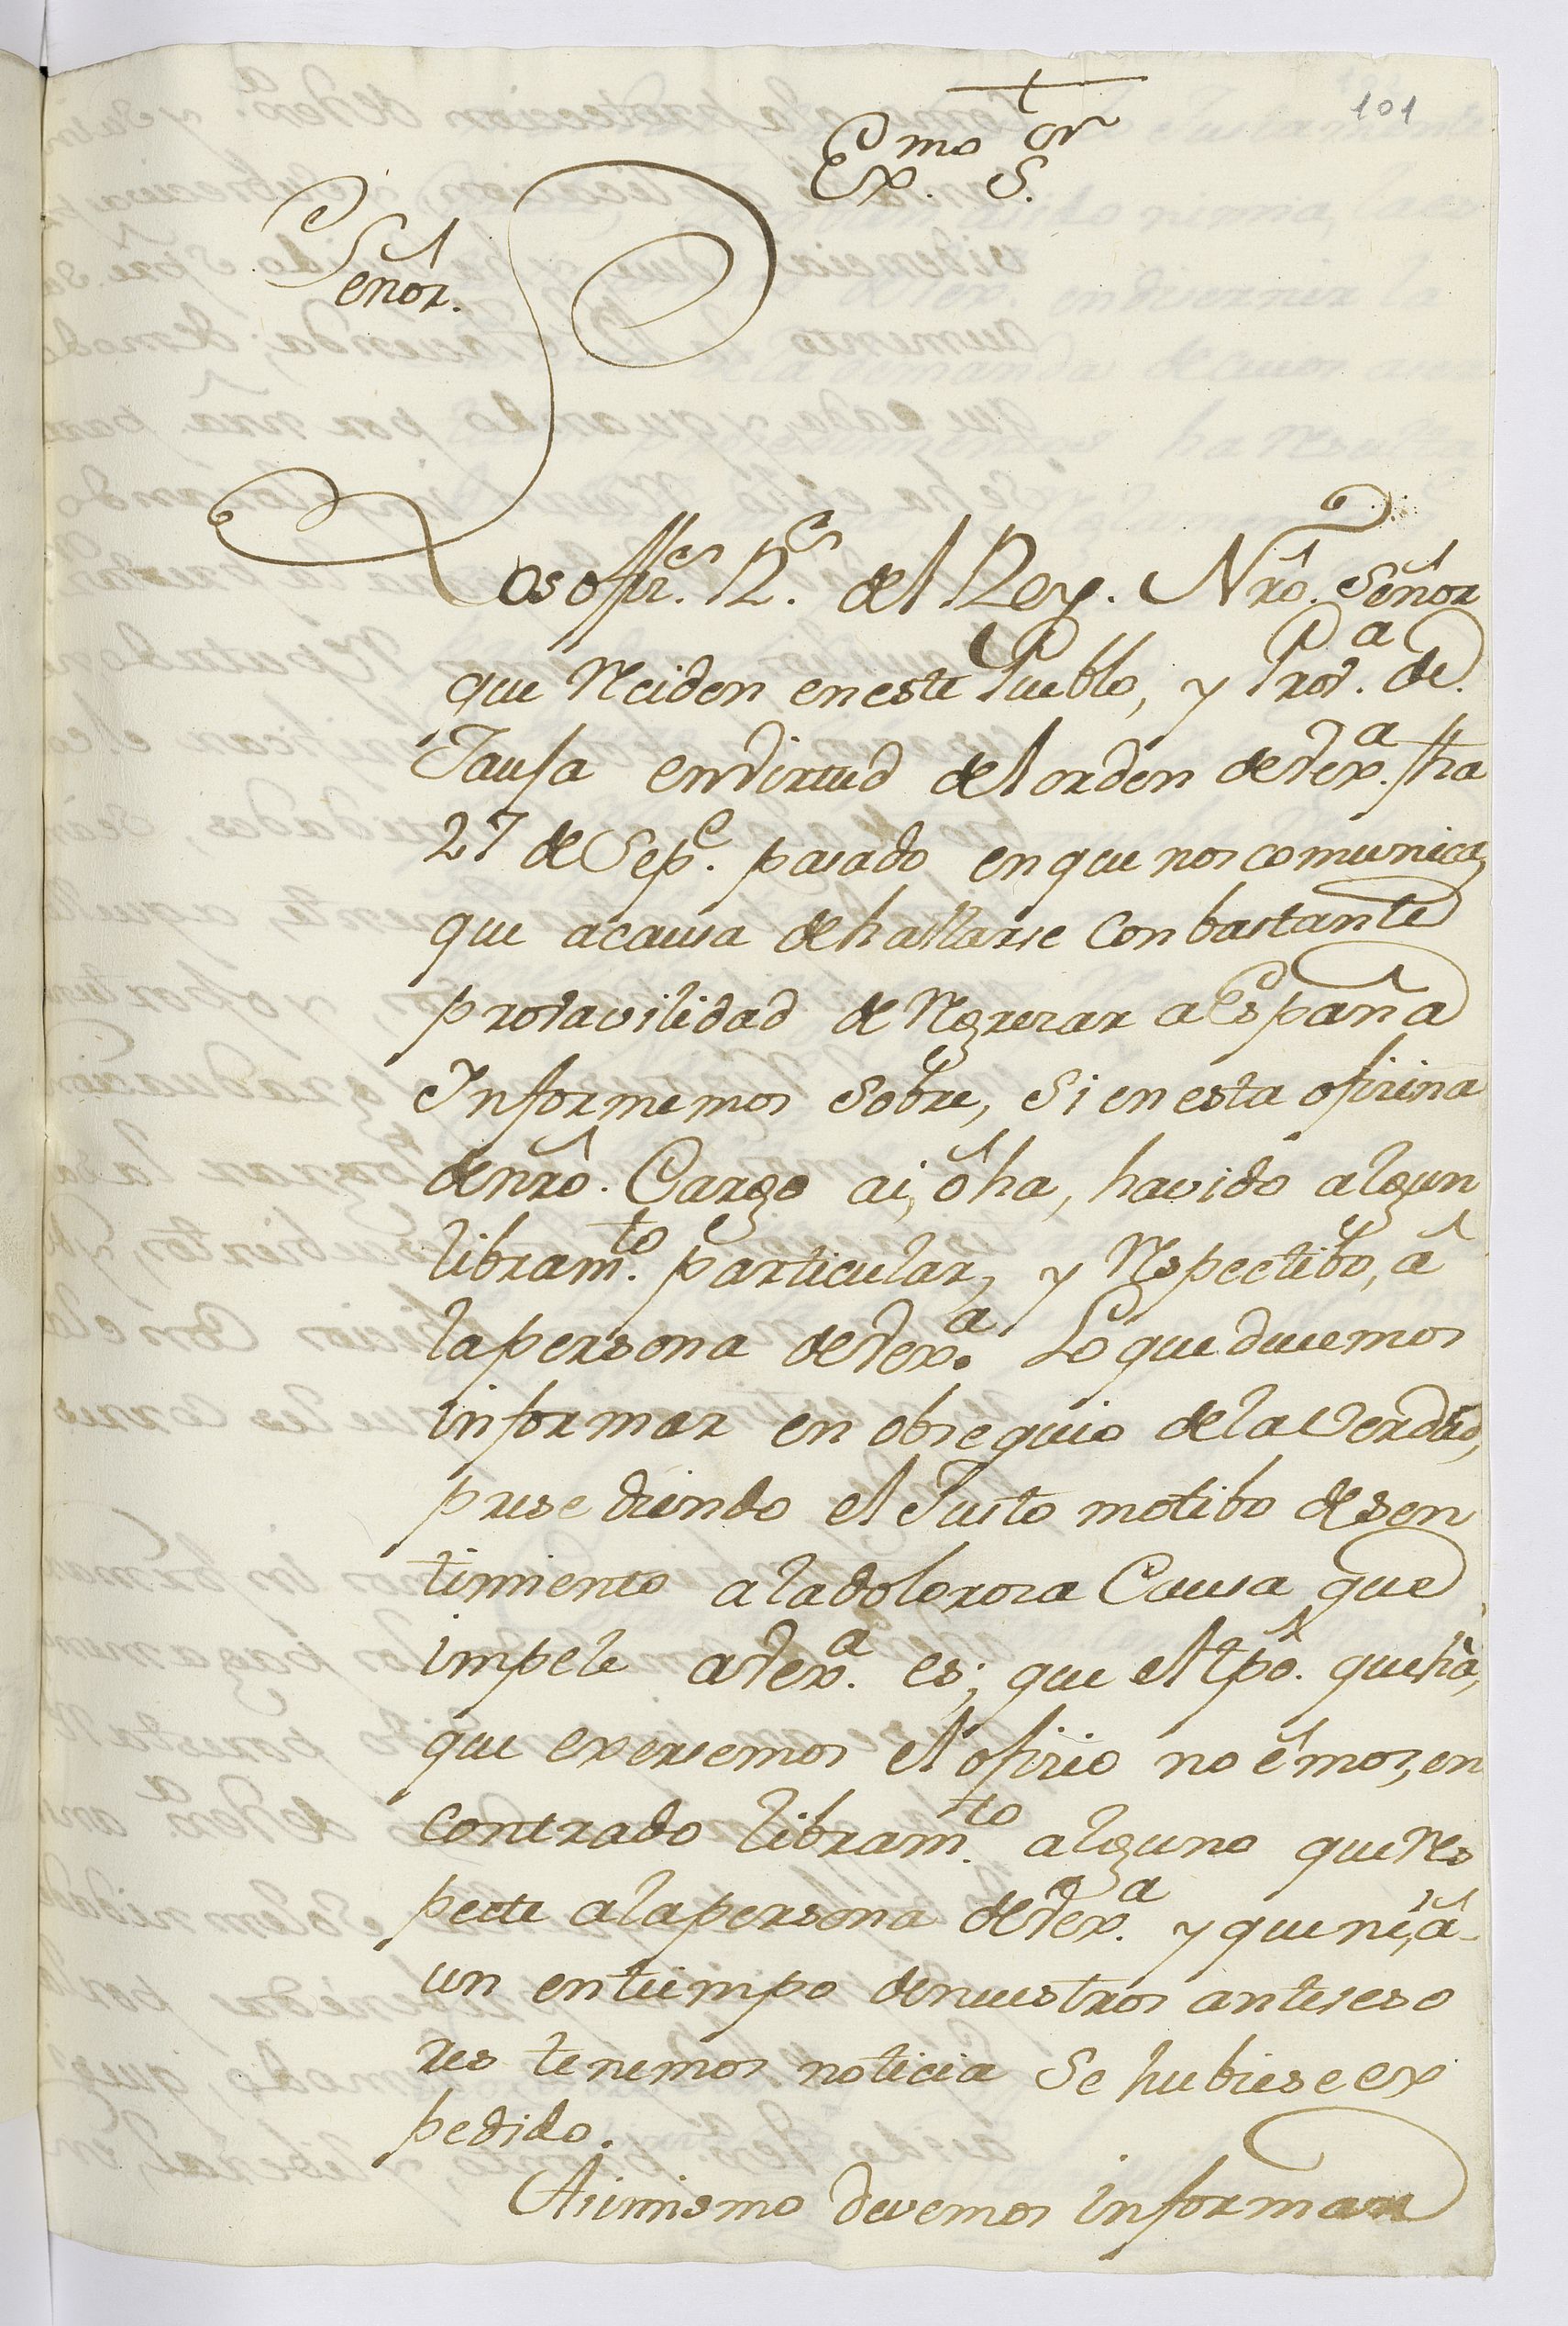 101
Ex.mo S.or
Señor.
Los offiz.es R.s del Rey. Nrô. Señor
que Reciden en este Pueblo, y Prov.a de
Jauja en virtud del orden de Vex.a fha
27 de Sep.e pasado en que nos comunica,
que a causa de hallarse con bastante
provavilidad de Regresar a España
Informemos sobre, si en esta ofizina
de nrô. Cargo ai, ô ha, havido algun
libram.to particular, y Respectibo, â
la persona de Vex.a Lo que devemos
informar en obsequio de la Verdad,
presediendo el Justo motibo de sen
timiento a la dolorosa Causa que
impele a Vex.a es; que el tpô. que hà,
que exersemos el ofizio no êmos, en
contrado libram.to alguno que Res
pecte a la persona de Vex.a y que ni, â
un en tiempo de nuestros anteseso
res tenemos noticia se hubiese ex
pedido.
Asimismo devemos informar